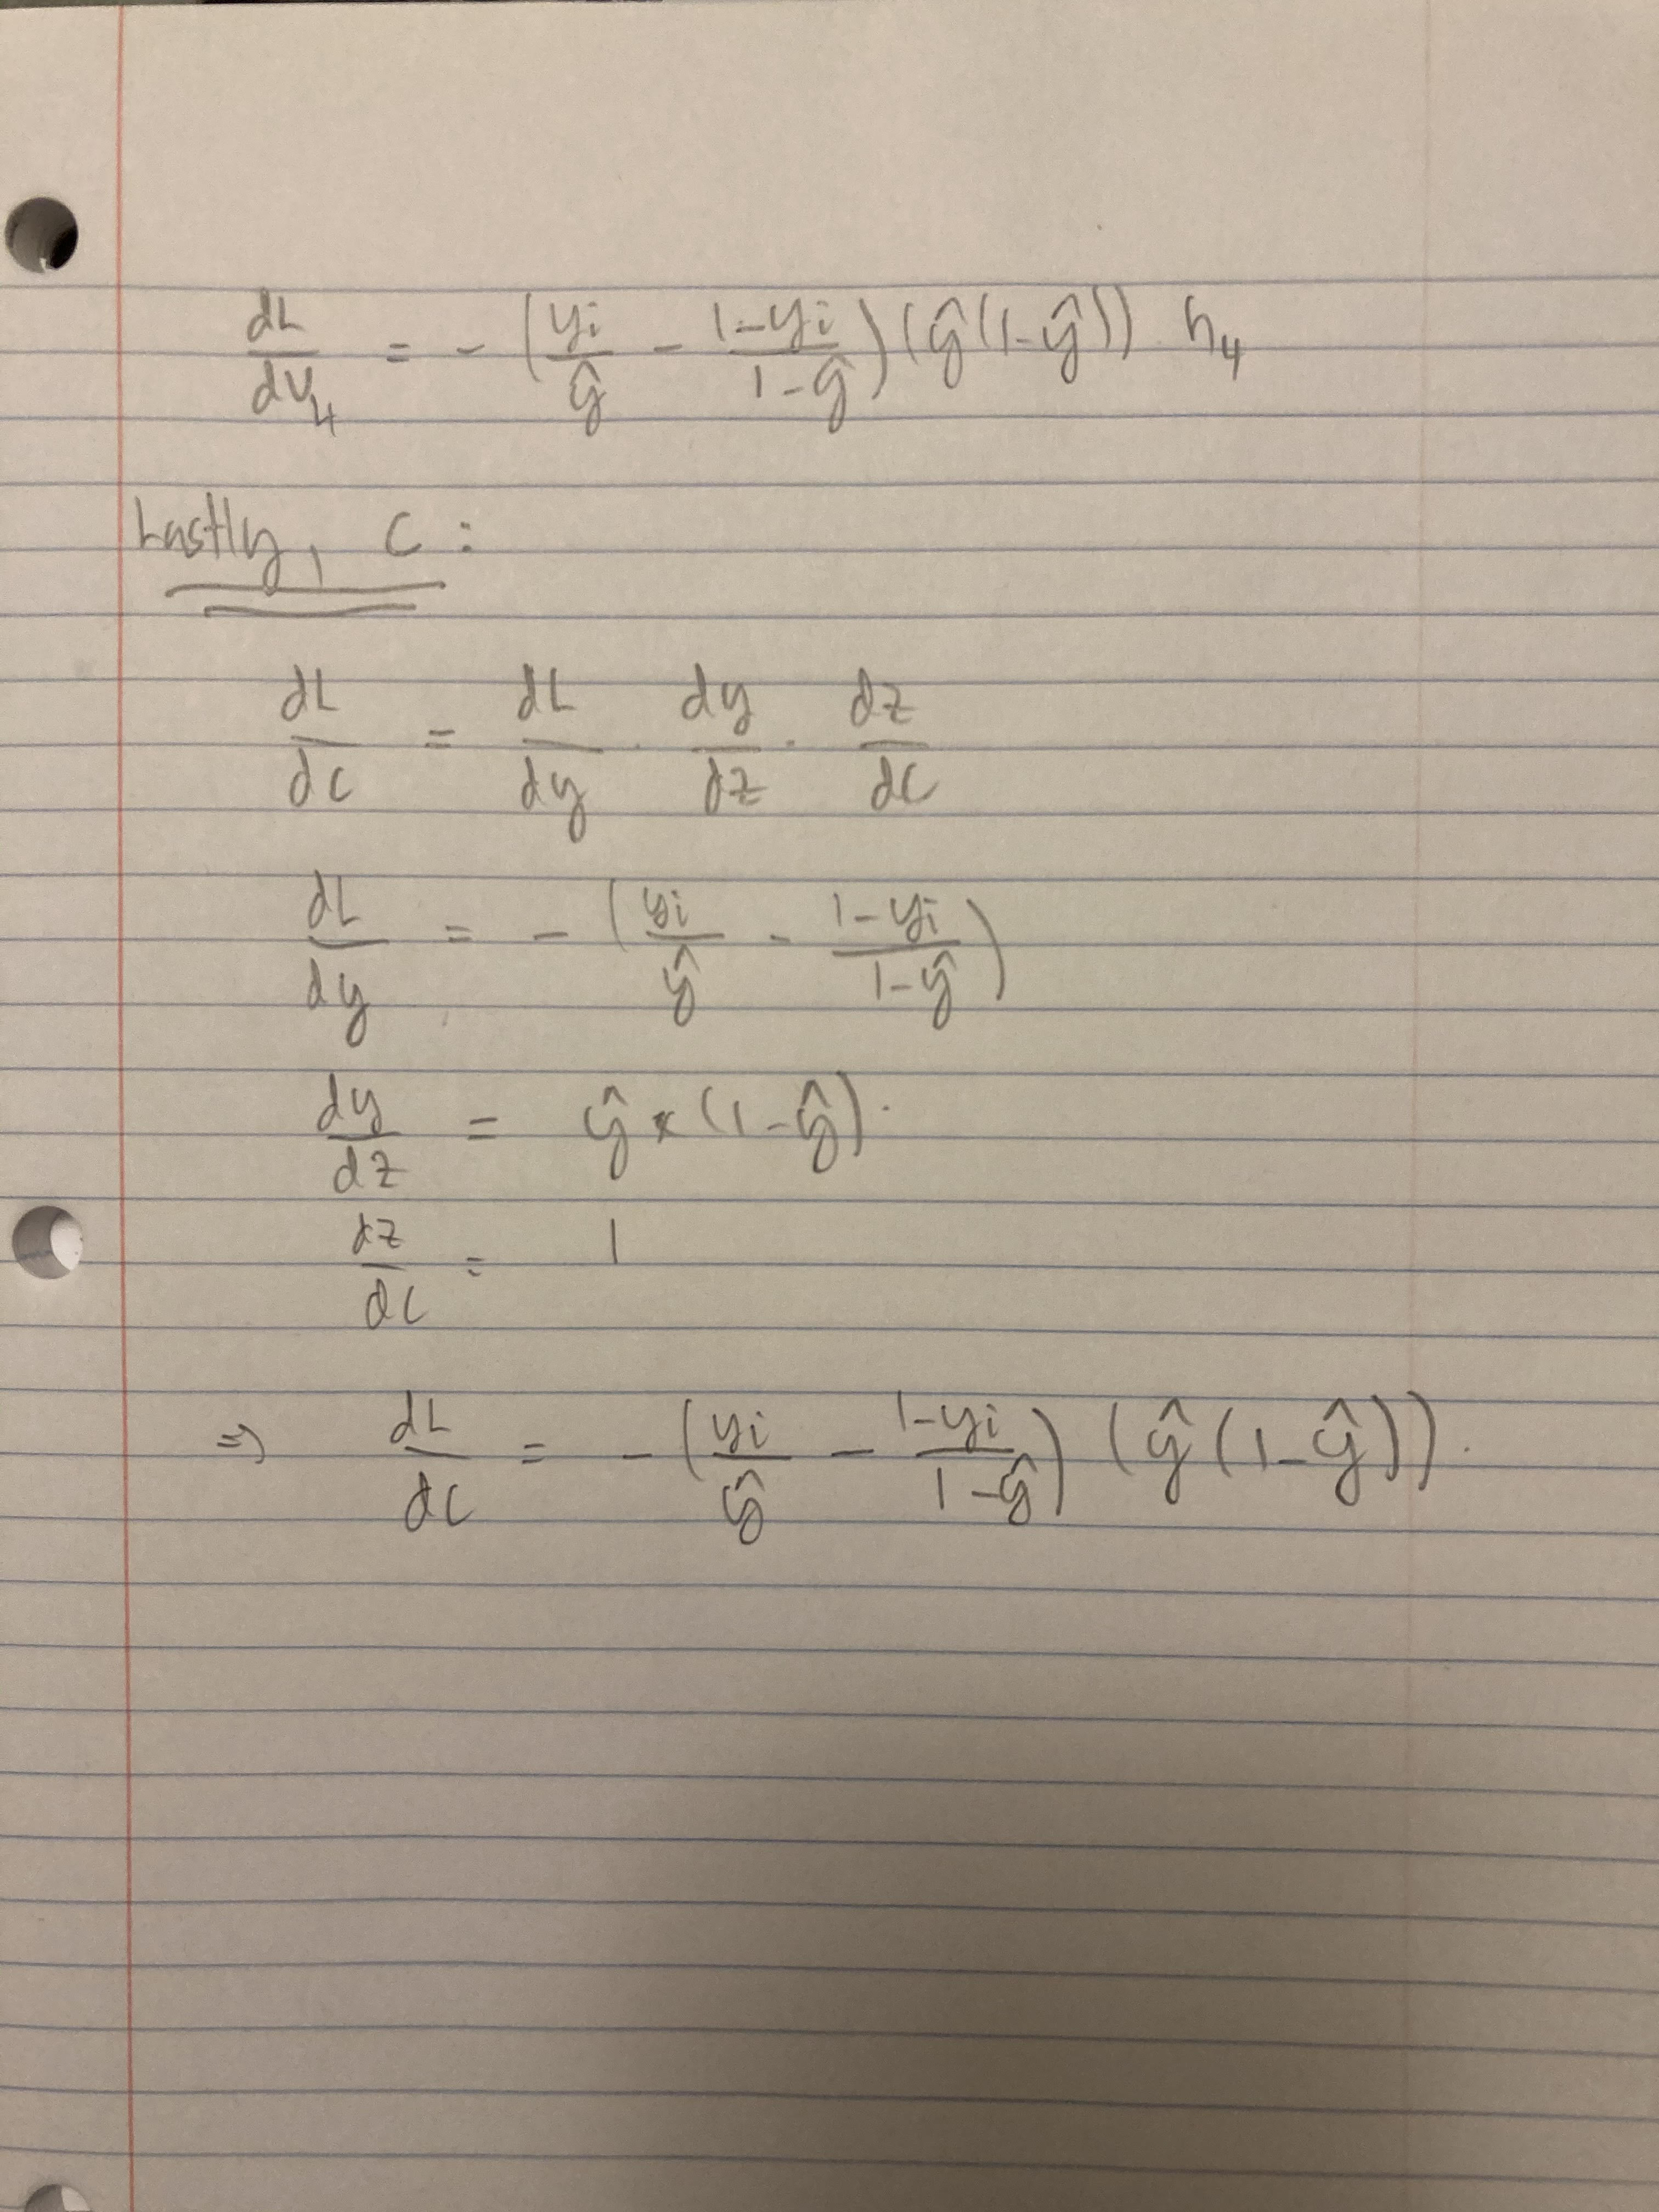 dL/dv₄ = - (yi/ŷ - 1-yi/1-ŷ) (ŷ(1-ŷ)) h₄
Lastly, C:
dL/dC = dL/dy · dy/dz · dz/dC
dL/dy = - (yi/ŷ - 1-yi/1-ŷ)
dy/dz = ŷ × (1-ŷ).
dz/dC = 1
⇒ dL/dC = - (yi/ŷ - 1-yi/1-ŷ) (ŷ(1-ŷ)).